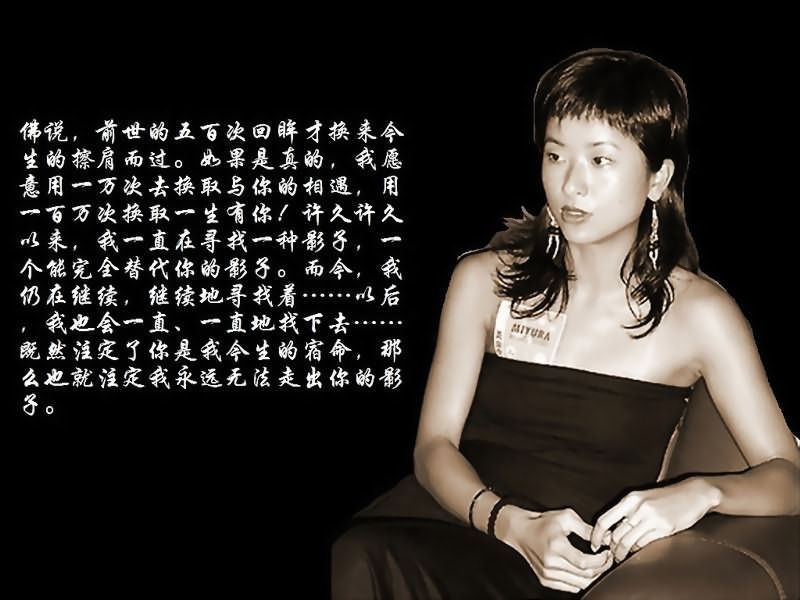 佛说，前世的五百次回眸才换来今
生的擦肩而过。如果是真的，我愿
意用一万次去换取与你的相遇，用
一百万次换取一生有你！许久许久
以来，我一直在寻找一种影子，一
个能完全替代你的影子。而今，我
仍在继续，继续地寻找着……以后
，我也会一直、一直地找下去……
既然注定了你是我今生的宿命，那
么也就注定我永远无法走出你的影
子。
MIYURA